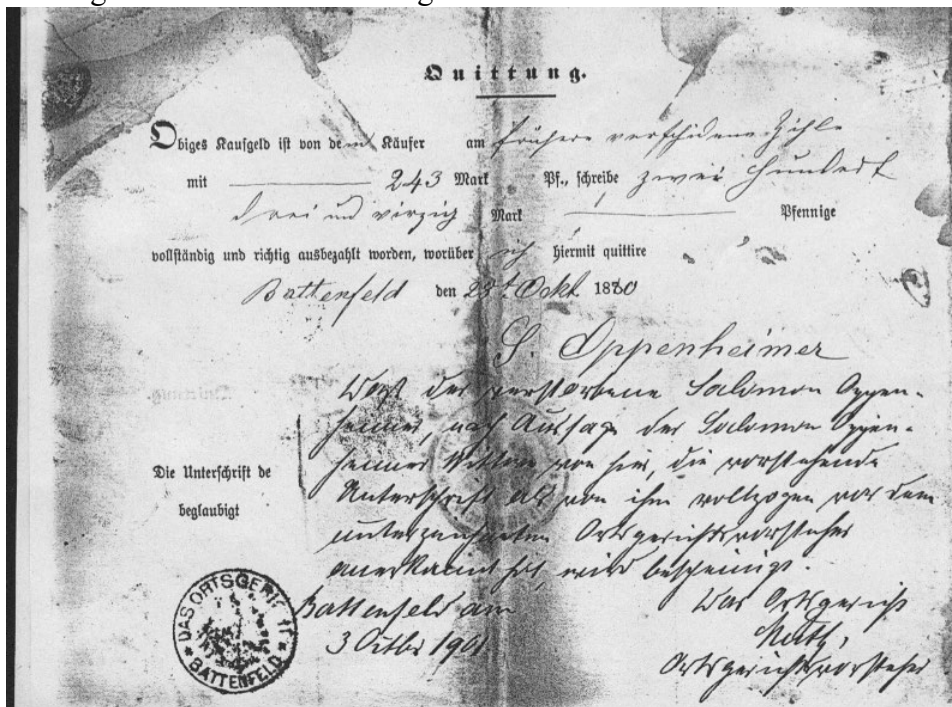 Quittung.
Obiges Kaufgeld ist von dem Käufer am frühere verschidene Zihle
mit 243 Mark Pf., schreibe zwei Hundert
drei und virzig Mark Pfennige
vollständig und richtig ausbezahlt worden, worüber ich hiermit quittire
Battenfeld den 28t Ockt. 1880
S. Oppenheimer
der verstorbene Salomon Oppen-
heimer, nach Aussage der Salomon Oppen-
heimer Wittwe von hier, die vorstehende
Die Unterschrift de
Unterschrift als von ihm vollzogen vor dem
beglaubigt
unterzeichneten Ortsgerichtsvorsteher
anerkannt hat, wird bescheinigt.
Battenfeld am
3 1901
Das Ortsgericht
Ortsgerichtsvorsteher
DAS ORTSGERICHT
BATTENFELD